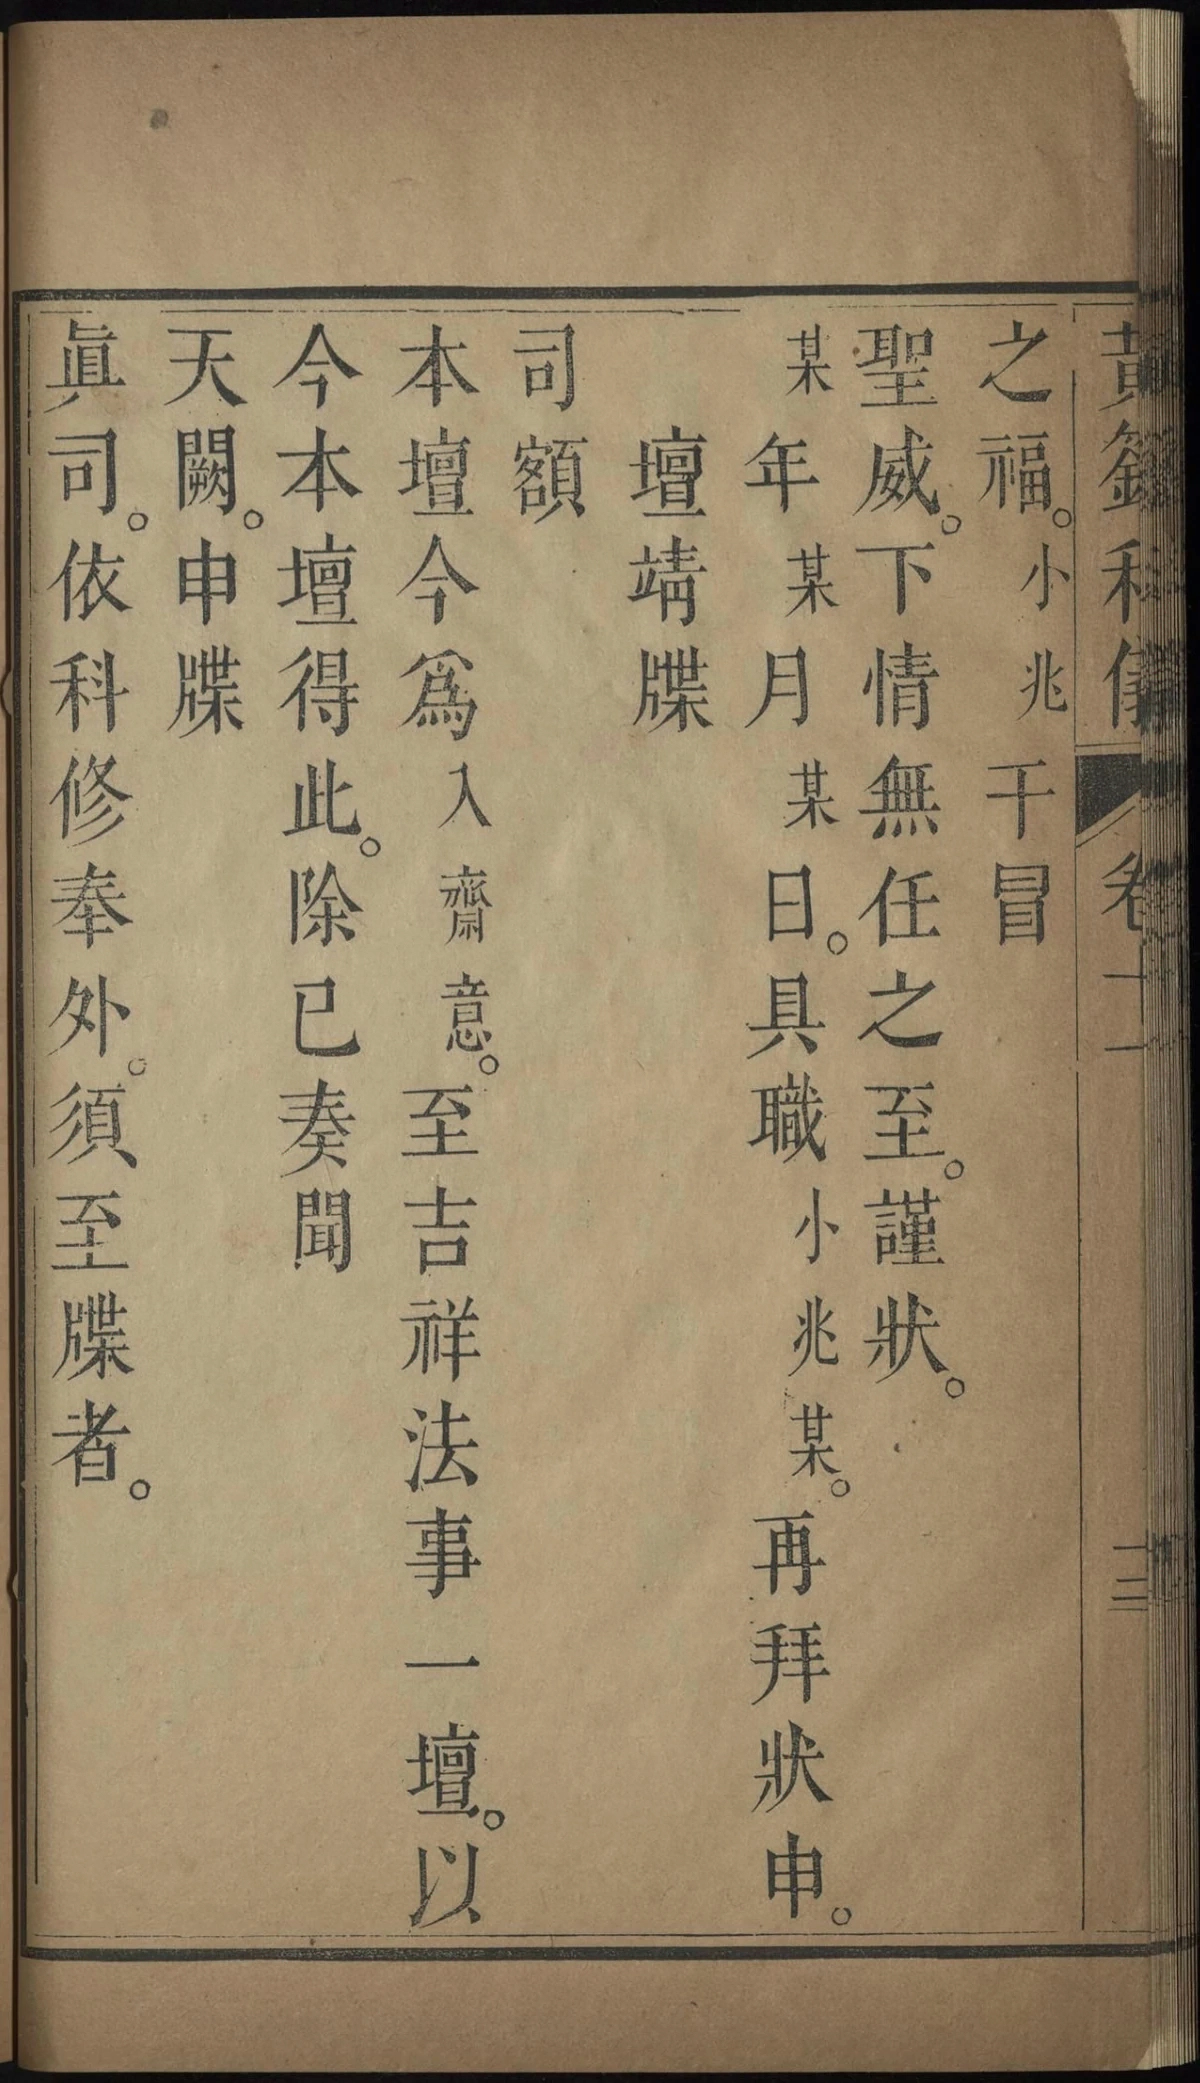 黃籙科儀 卷十一 十三
之福。小兆干冒
聖威。下情無任之至。謹狀。
某年某月某日。具職小兆某。再拜狀申。
壇靖牒
司額
本壇今爲入齋意。至吉祥法事一壇。以
今本壇得此。除已奏聞
天闕。申牒
眞司。依科修奉外。須至牒者。